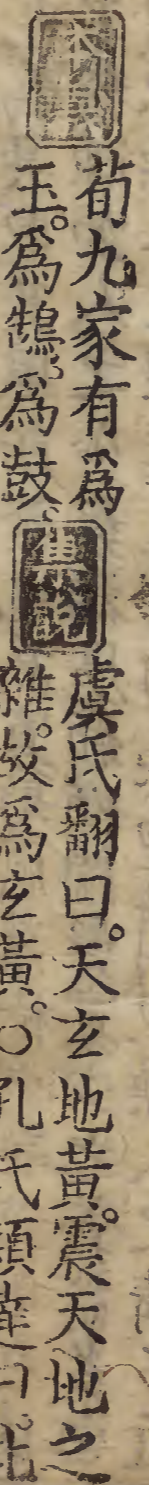 本義
荀九家有爲
玉。爲鵠。爲鼓。
集說
虞氏翻曰。天玄地黃。震天地之
雜。故爲玄黃。○孔氏穎達曰。此